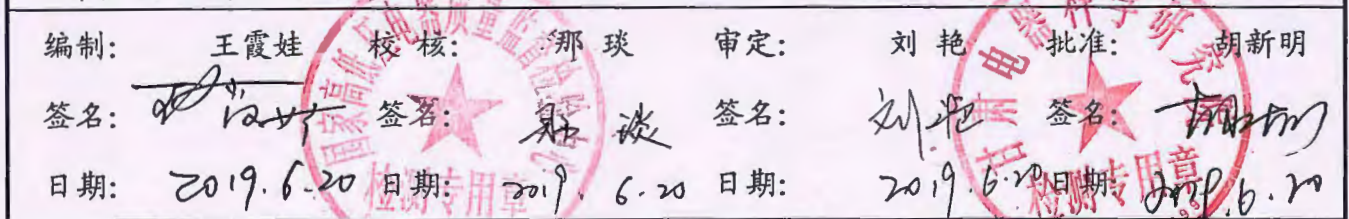 编制: 王霞娃 校核: 那琰 审定: 刘艳 批准: 胡新明
签名: 签名: 签名: 刘艳 签名:
日期: 2019.6.20 日期: 2019.6.20 日期: 2019.6.20 日期: 2019.6.20
国家高低压电器质量监督检验中心
检测专用章
甘肃电器科学研究院
检测专用章